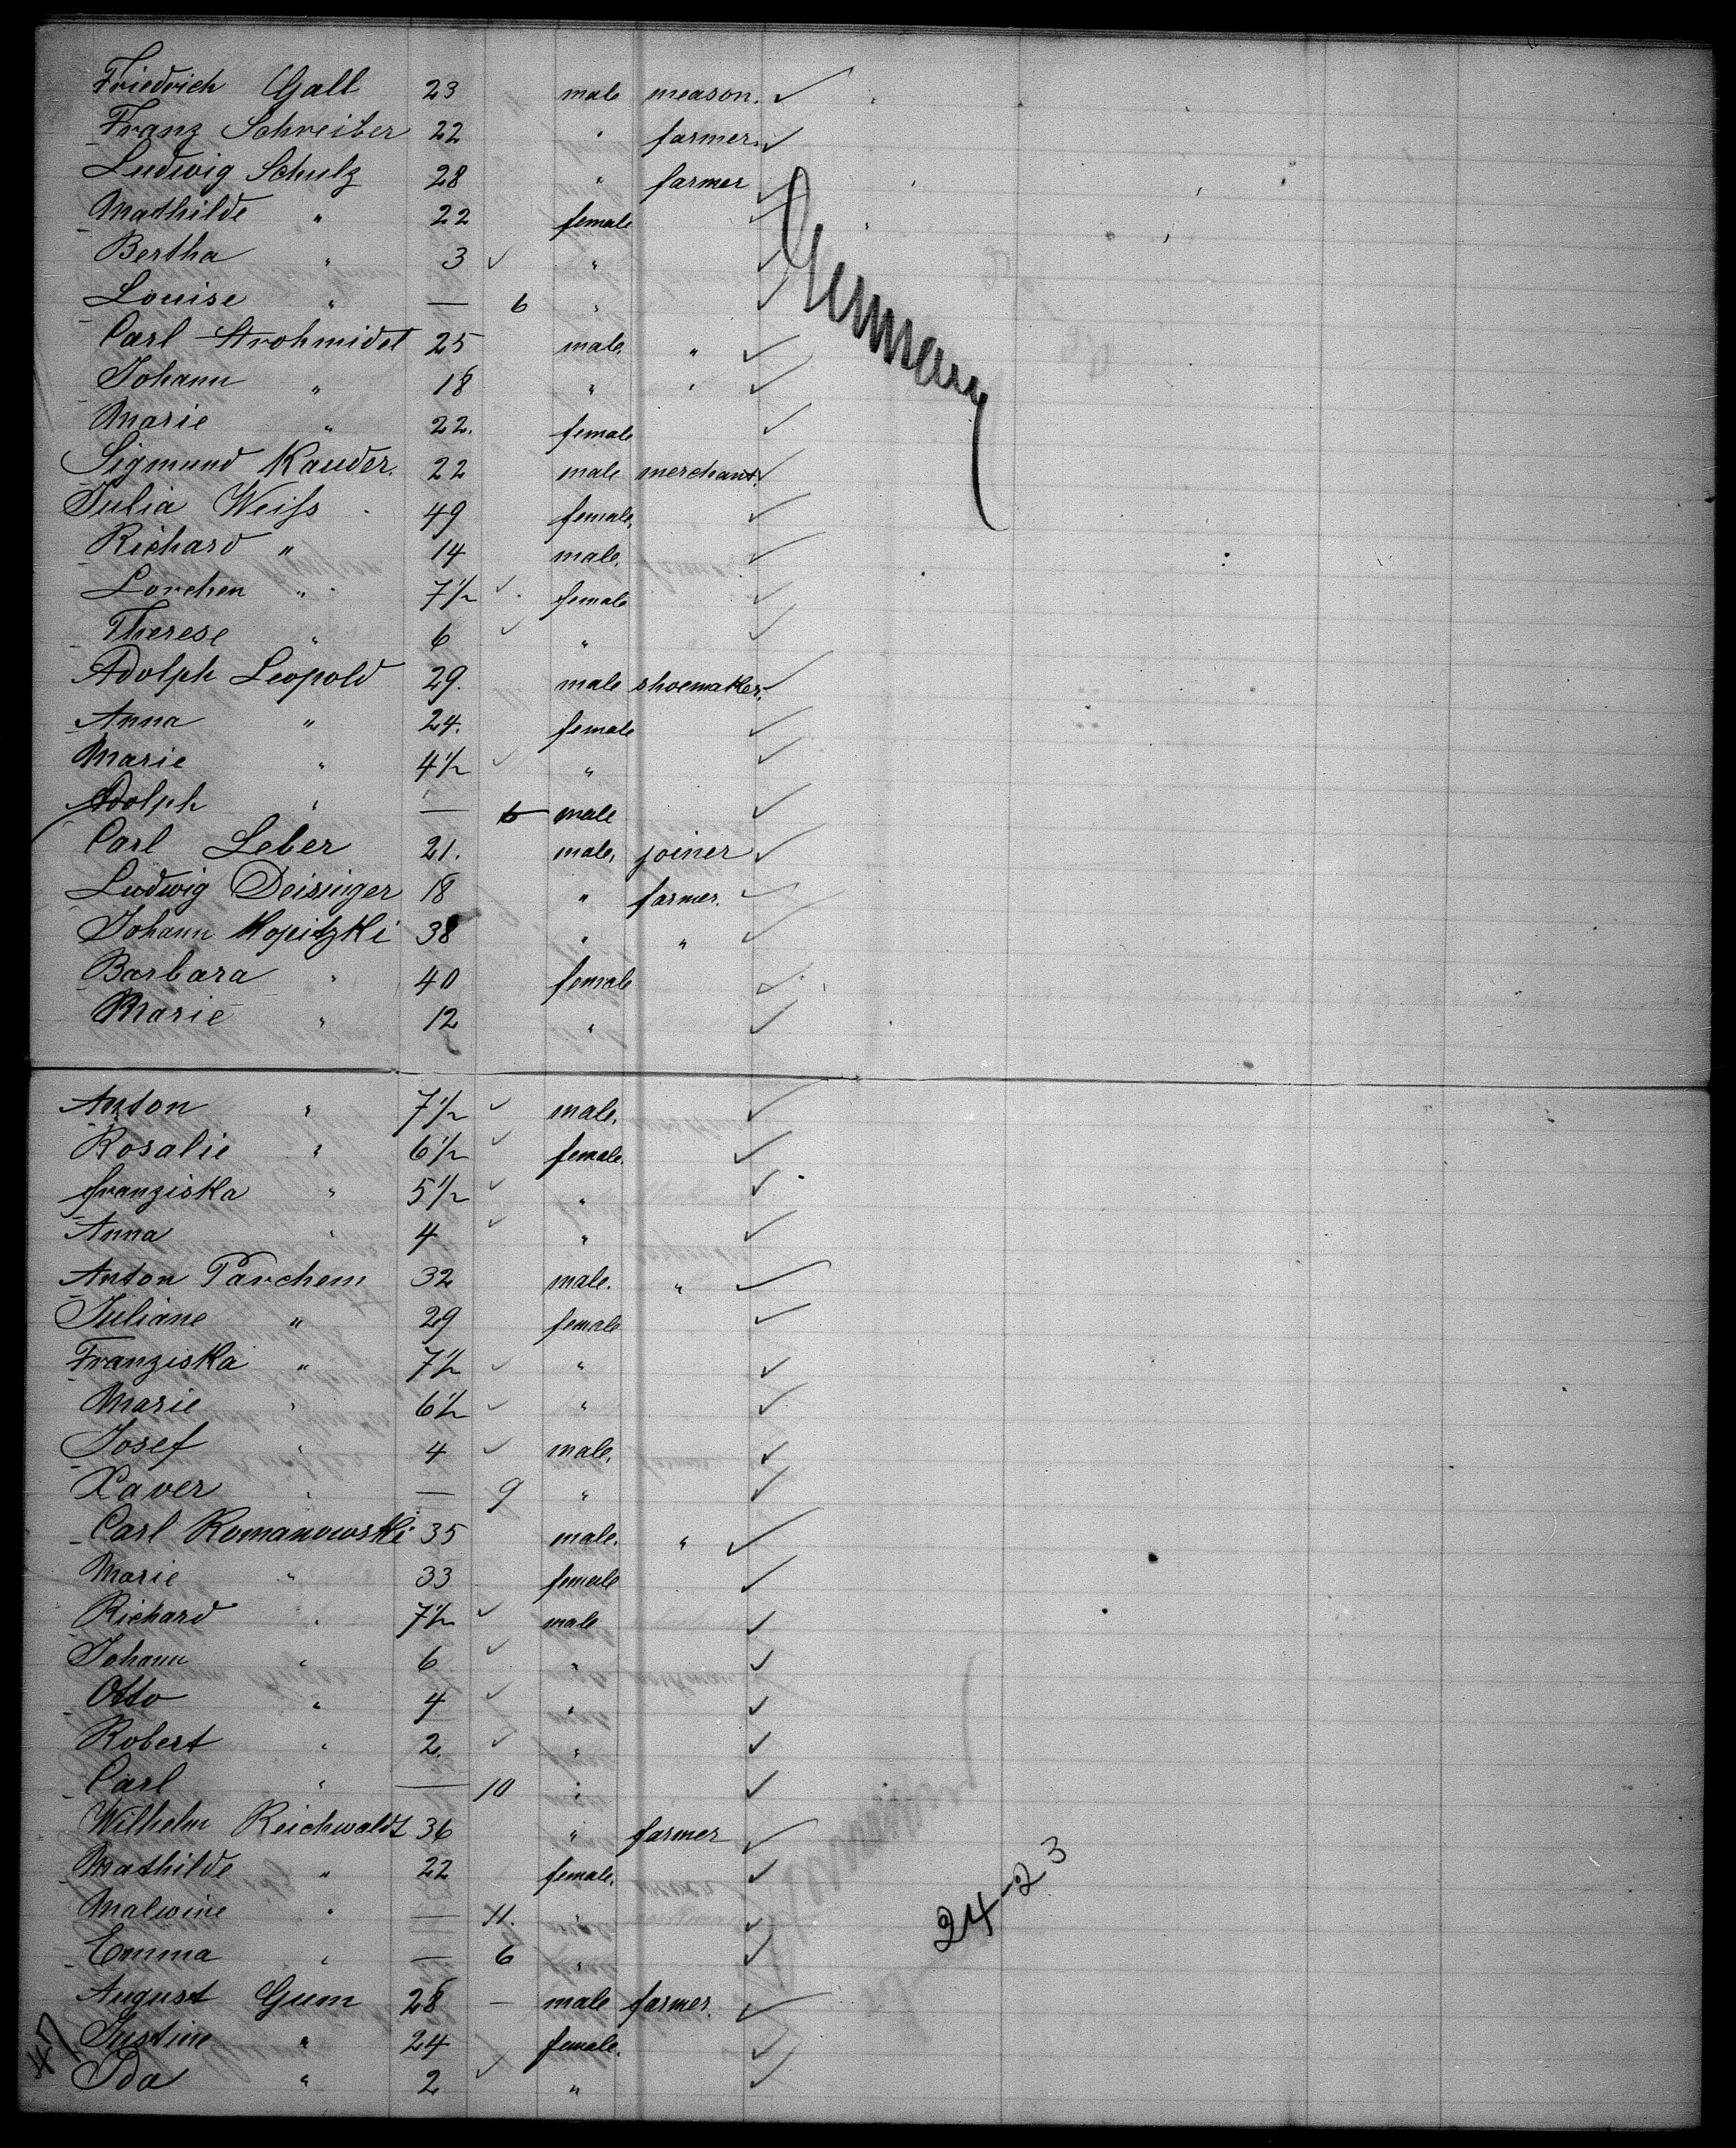 Friedrich Gall 23 male meason.
Franz Schreiber 22 " farmer.
Ludwig Schulz 28 " farmer
Mathilde " 22 female
Bertha " 3 "
Louise " — 6 "
Carl Strohmidel 25 male, "
Johann " 18 " "
Marie " 22. female
Sigmund Kauder. 22 male merchant.
Julia Weiſs 49 female,
Richard " 14 male,
Lorchen " 7½ female
Therese " 6 "
Adolph Leopold 29. male shoemaker.
Anna " 24. female
Marie " 4½ "
Adolph " — 6 male
Carl Leber 21. male, joiner
Ludwig Deisinger 18 " farmer.
Johann Kopitzki 38 " "
Barbara " 40 female
Marie " 12 "
Anton " 7½ male,
Rosalie " 6½ female.
Franziska " 5½ "
Anna " 4 "
Anton Parchem 32 male. "
Juliane " 29 female
Franziska " 7½ "
Marie " 6½ "
Josef " 4 male,
Xaver " — 9 "
Carl Romanowski 35 male. "
Marie " 33 female
Richard " 7½ male
Johann " 6 "
Otto " 4 "
Robert " 2. "
Carl " — 10 "
Wilhelm Reichwaldt 36 " farmer
Mathilde " 22 female,
Malwine " — 11. "
Emma " — 6 "
August Gum 28 — male farmer.
Justine " 24 female.
Ida " 2 "
Germany
24-23
47